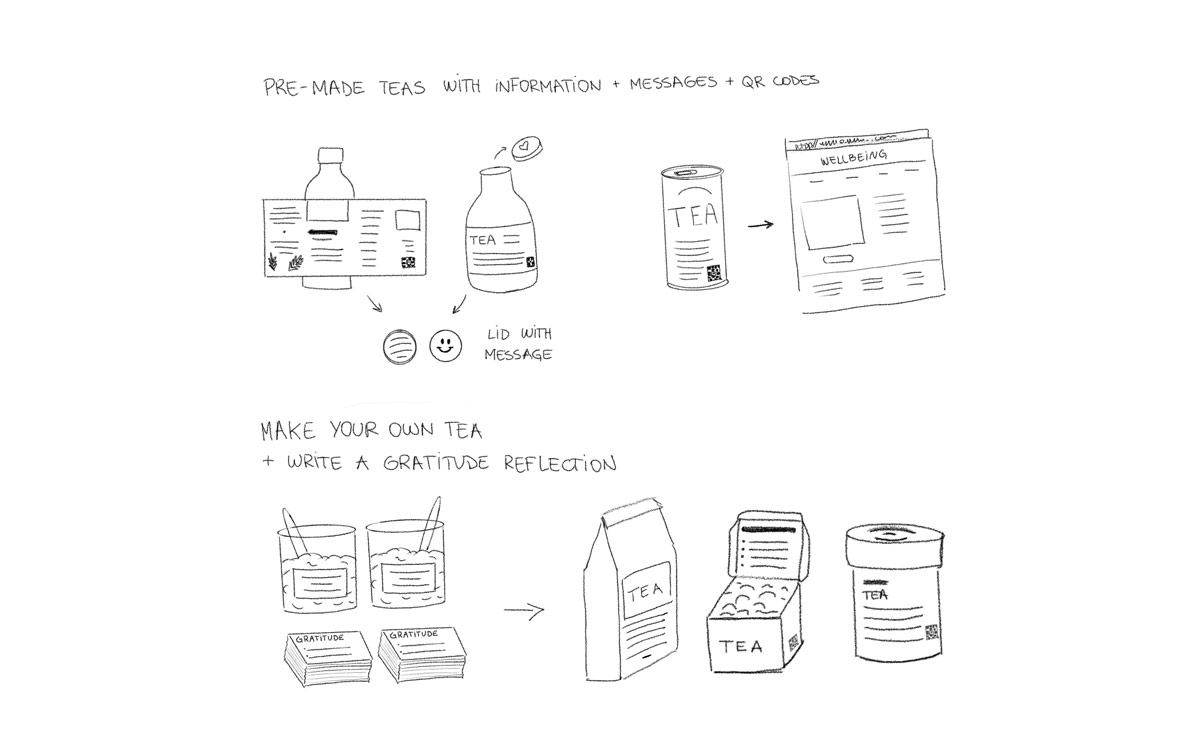 PRE-MADE TEAS WITH INFORMATION + MESSAGES + QR CODES
TEA
TEA
WELLBEING
LID WITH
MESSAGE
MAKE YOUR OWN TEA
+ WRITE A GRATITUDE REFLECTION
GRATITUDE
GRATITUDE
TEA
TEA
TEA